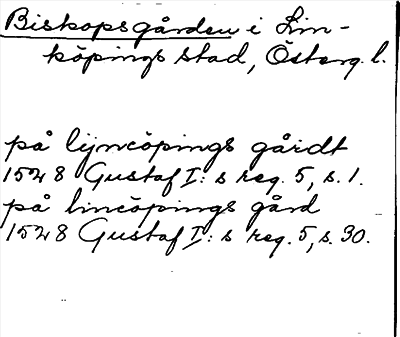 Biskopsgården i Lin-
köpings stad, Österg. l.
på lijncöpings gårdt
1528 Gustaf I:s reg. 5, s. 1.
på lincöpings gård
1528 Gustaf I:s reg. 5, s. 30.